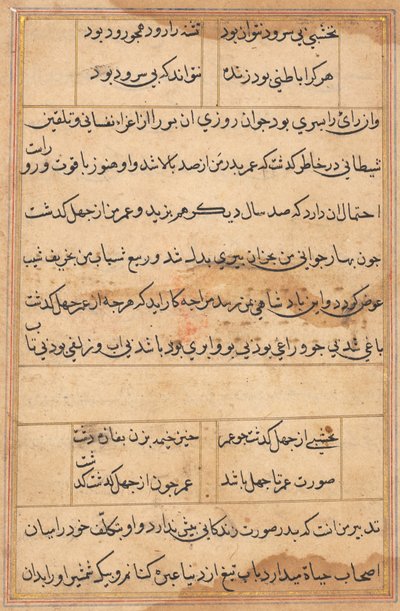 نخشبی بی سرود نتوان بود تشنه را رود هم درود بود
هر کرا باطنی بود زنده نتواند که بی سرود بود
و آن رای را پسری بود جوان روزی آن پسر را از اغراء نفسانی و تلقین
شیطانی در خاطر گذشت که عمر پدر من از صد بالا شد و او هنوز با قوت و رای است و رو
احتمال آن دارد که صد سال دیگر هم بزید و عمر من از چهل گذشت
چون بهار جوانی من بخزان پیری بدل شد و ربیع شباب من بخریف شیب
عوض گردد و این پادشاهی بمن رسد مرا چه کار آید که هر چه از عمر چهل گذشت
باغی شد بی جو و راغی بود بی بو و اری بود باشد بی آب و زلفی بود بی تاب
نخشبی از چهل گذشت چو عمر خیز خیمه بزن بغازه دشت
صورت عمر تا چهل باشد عمر چون از چهل گذشت گذشت
تدبیر من آنست که پدر صورت زندگانی بیش ندارد و او بتکلف خود را میان
اصحاب حیاة میدارد باب تیغ از دنیا عبره کنانم و بیک شمشیر او را بدان